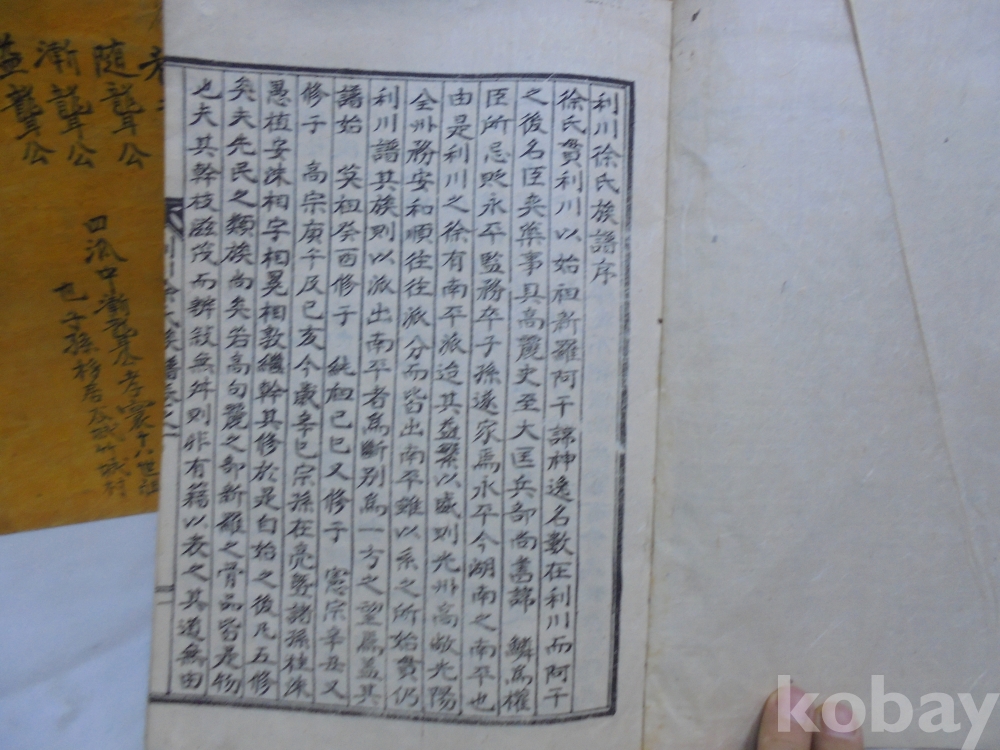 利川徐氏族譜序
徐氏貫利川以始祖新羅阿干諱神逸名數在利川而阿干
之後名臣奕葉事具高麗史至大匡兵部尚書諱 鱗爲權
臣所忌貶永平監務卒子孫遂家焉永平今湖南之南平也
由是利川之徐有南平派迨其益繁以盛則光州高敞光陽
全州務安和順往往派分而皆出南平雖以系之所始貫仍
利川譜其族則以派出南平者爲斷別爲一方之望焉蓋其
譜始 英祖癸酉修于 純祖己巳又修于 憲宗辛丑又
修于 高宗庚午及己亥今歲辛巳宗孫在亮曁諸孫桂洙
愚植安洙相宇相冕相敦繼幹其修於是自始之後凡五修
矣夫先民之類族尚矣若高句麗之部新羅之骨品皆是物
也夫其幹枝滋茂而辨敍無舛則非有籍以表之其道無由
利川徐氏族譜卷之一
隨聾公
漸聾公
聾公
四派中漸聾公孝寞十六世祖
也子孫移居
kobay